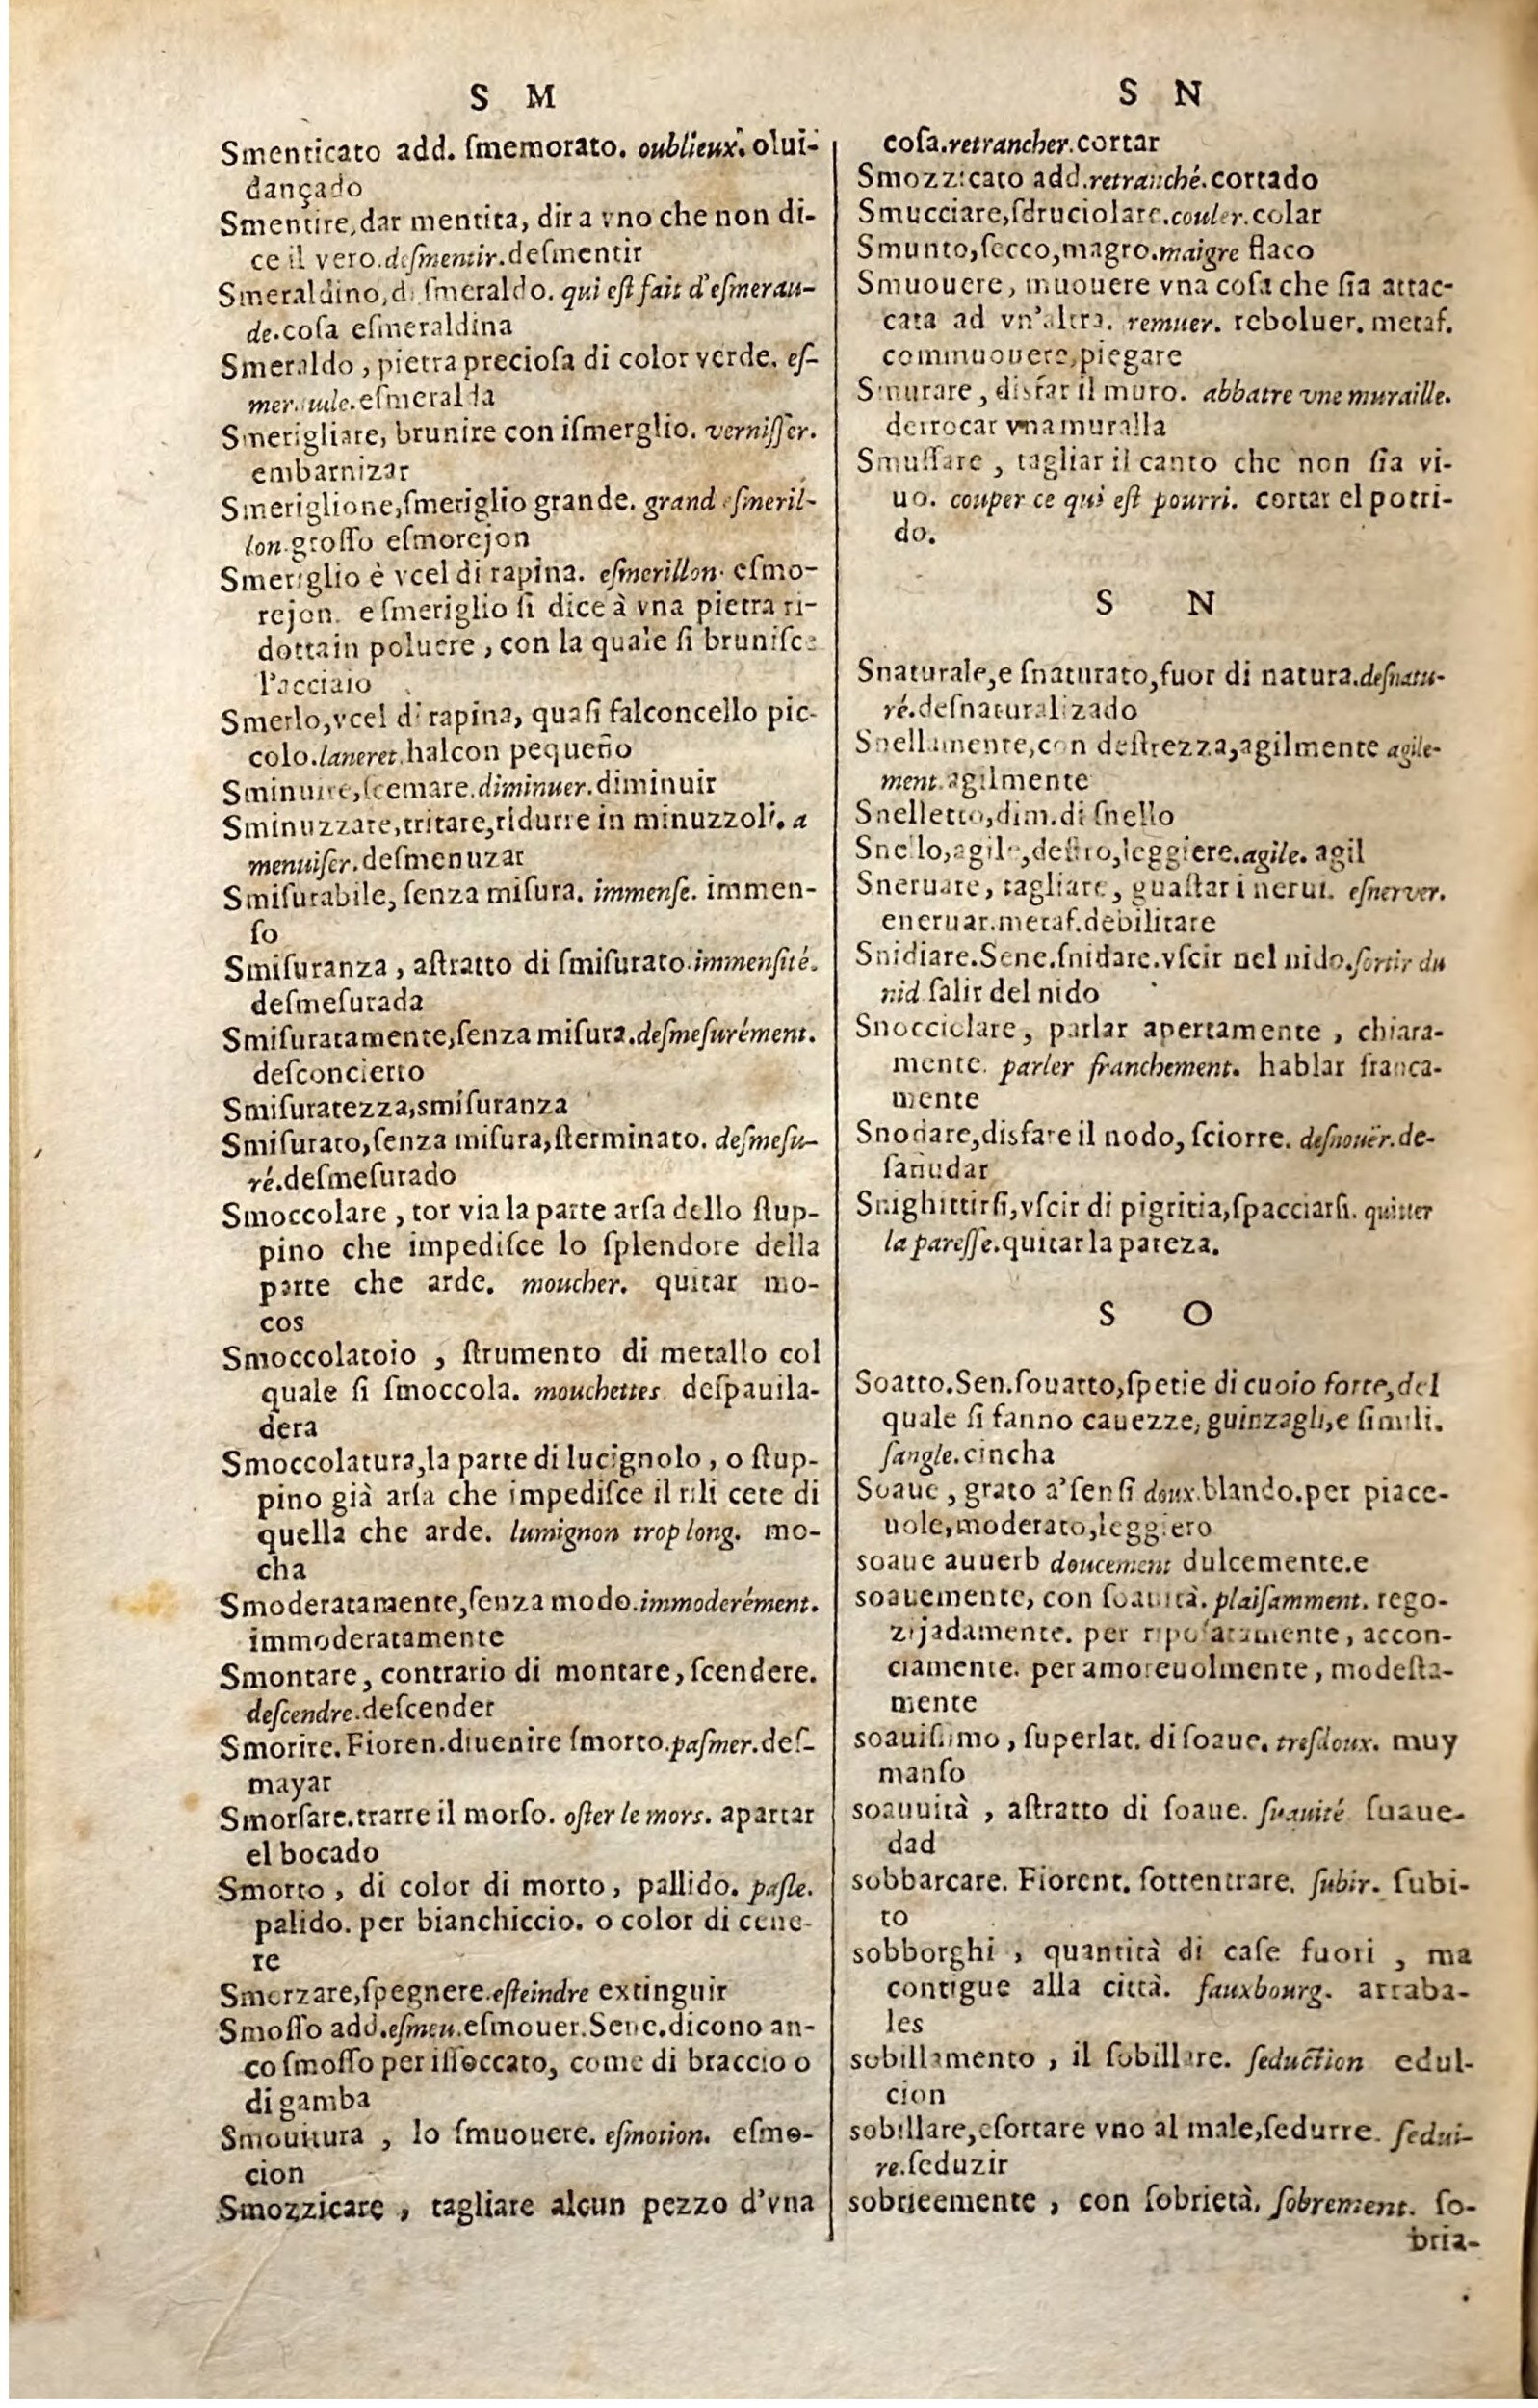 S M
Smenticato add. ſmemorato. oublieux. olui-
dançado
Smentire, dar mentita, dir a vno che non di-
ce il vero. deſmentir. deſmentir
Smeraldino, di ſmeraldo. qui eſt fait d'eſmerau-
de. coſa eſmeraldina
Smeraldo, pietra precioſa di color verde. eſ-
meraude. eſmeralda
Smerigliare, brunire con iſmerglio. verniſſer.
embarnizar
Smeriglione, ſmeriglio grande. grand eſmeril-
lon. groſſo eſmorejon
Smeriglio è vcel di rapina. eſmerillon. eſmo-
rejon. e ſmeriglio ſi dice à vna pietra ri-
dottain poluere, con la quale ſi bruniſce
l'acciaio
Smerlo, vcel di rapina, quaſi falconcello pic-
colo. laneret. halcon pequeño
Sminuire, ſcemare. diminuer. diminuir
Sminuzzare, tritare, ridurre in minuzzoli. a
menuiſer. deſmenuzar
Smiſurabile, ſenza miſura. immenſe. immen-
ſo
Smiſuranza, aſtratto di ſmiſurato. immenſité.
deſmeſurada
Smiſuratamente, ſenza miſura. deſmeſurément.
deſconcierto
Smiſuratezza, smiſuranza
Smiſurato, ſenza miſura, ſterminato. deſmeſu-
ré. deſmeſurado
Smoccolare, tor via la parte arſa dello ſtup-
pino che impediſce lo ſplendore della
parte che arde. moucher. quitar mo-
cos
Smoccolatoio, ſtrumento di metallo col
quale ſi ſmoccola. mouchettes deſpauila-
dera
Smoccolatura, la parte di lucignolo, o ſtup-
pino già arſa che impediſce il rili cete di
quella che arde. lumignon trop long. mo-
cha
Smoderatamente, ſenza modo. immoderément.
immoderatamente
Smontare, contrario di montare, ſcendere.
deſcendre. deſcender
Smorire. Fioren. diuenire ſmorto. paſmer. deſ-
mayar
Smorſare. trarre il morſo. oſter le mors. apartar
el bocado
Smorto, di color di morto, pallido. paſle.
palido. per bianchiccio. o color di cene-
re
Smorzare, ſpegnere. eſteindre extinguir
Smoſſo add. eſmeu. eſmouer. Sene. dicono an-
co ſmoſſo per iſloccato, come di braccio o
di gamba
Smouitura, lo ſmuouere. eſmotion. eſmo-
cion
Smozzicare, tagliare alcun pezzo d'vna
S N
coſa. retrancher. cortar
Smozzicato add. retranché. cortado
Smucciare, ſdruciolare. couler. colar
Smunto, ſecco, magro. maigre flaco
Smuouere, muouere vna coſa che ſia attac-
cata ad vn'altra. remuer. reboluer. metaf.
commuouere, piegare
Smurare, disfar il muro. abbatre vne muraille.
derrocar vna muralla
Smuſſare, tagliar il canto che non ſia vi-
uo. couper ce qui eſt pourri. cortar el potri-
do.
S N
Snaturale, e ſnaturato, fuor di natura. deſnatu-
ré. deſnaturalizado
Snellamente, con deſtrezza, agilmente agile-
ment. agilmente
Snelletto, dim. di ſnello
Snello, agile, deſtro, leggiere. agile. agil
Sneruare, tagliare, guaſtar i nerui. eſnerver.
eneruar. metaf. debilitare
Snidiare. Sene. ſnidare. vſcir nel nido. ſortir du
nid. ſalir del nido
Snocciolare, parlar apertamente, chiara-
mente. parler franchement. hablar franca-
mente
Snodare, disfare il nodo, ſciorre. deſnouër. de-
ſañudar
Snighittirſi, vſcir di pigritia, ſpacciarſi. quitter
la pareſſe. quitar la pareza.
S O
Soatto. Sen. ſouatto, ſpetie di cuoio forte, del
quale ſi fanno cauezze, guinzagli, e ſimili.
ſangle. cincha
Soaue, grato a'ſenſi doux. blando. per piace-
uole, moderato, leggiero
soaue auuerb doucement dulcemente. e
soauemente, con ſoauità. plaiſamment. rego-
zijadamente. per ripoſatamente, accon-
ciamente. per amoreuolmente, modeſta-
mente
soauiſſimo, ſuperlat. di ſoaue. treſdoux. muy
manſo
soauuità, aſtratto di ſoaue. ſuauité ſuaue-
dad
sobbarcare. Fiorent. ſottentrare. ſubir. ſubi-
to
sobborghi, quantità di caſe fuori, ma
contigue alla città. fauxbourg. arraba-
les
sobillamento, il ſobillare. ſeduction edul-
cion
sobillare, eſortare vno al male, ſedurre. ſedui-
re. ſeduzir
sobrieemente, con ſobrietà. ſobrement. ſo-
bria-